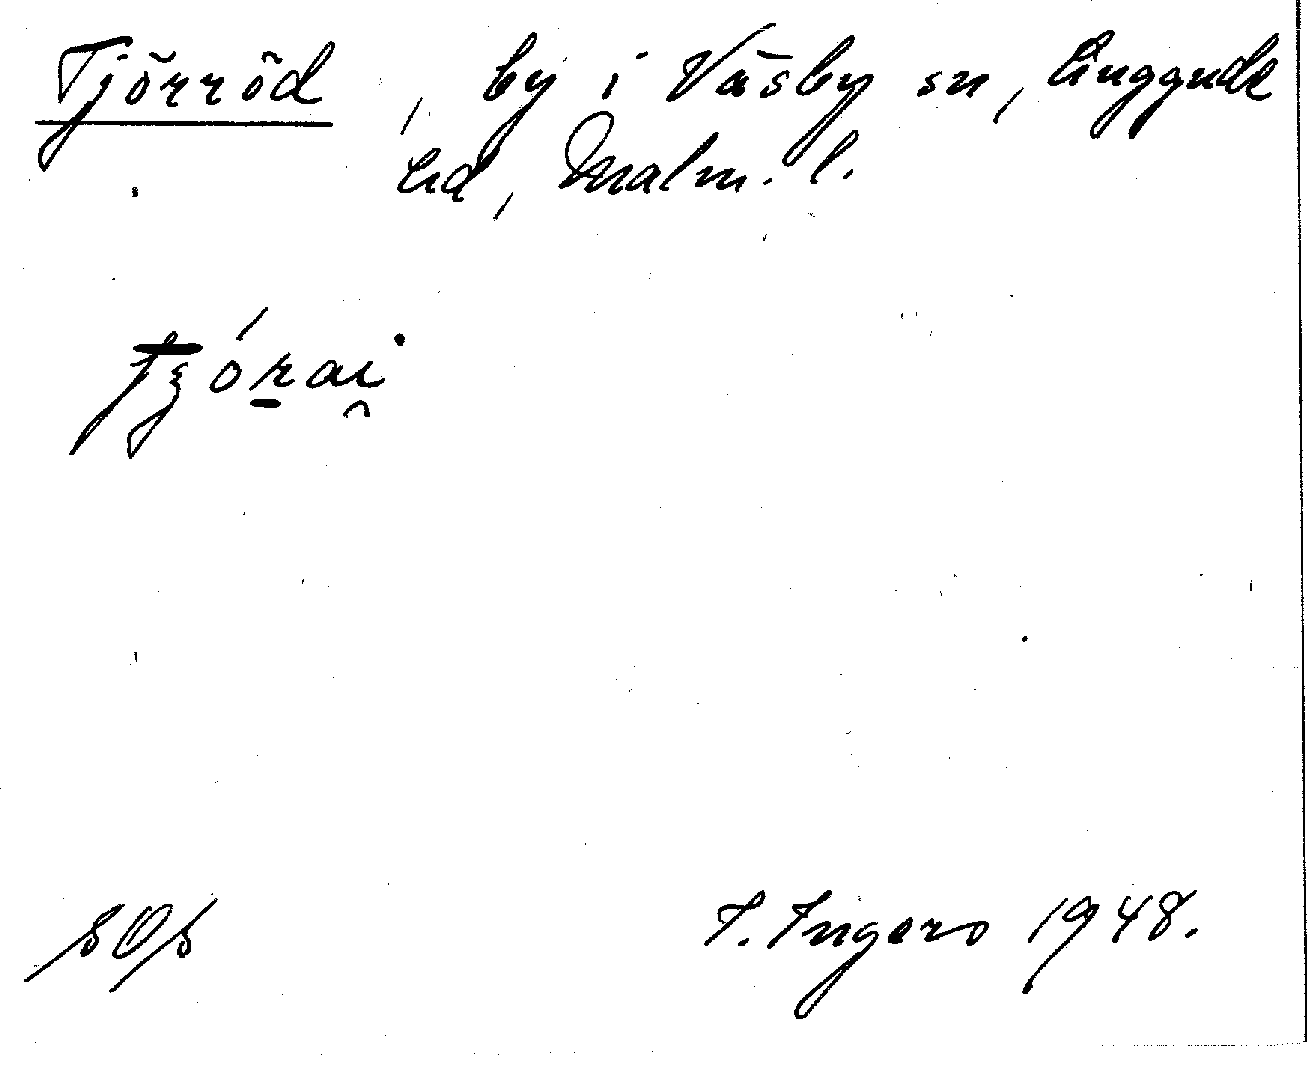 Tjörröd, by i Väsby sn, Luggude
hd, Malm. l.
SOS I. Ingers 1948.